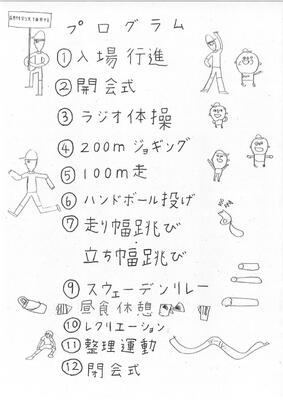 プログラム
①入場行進
②開会式
③ラジオ体操
④200mジョギング
⑤100m走
⑥ハンドボール投げ
⑦走り幅跳び
・立ち幅跳び
⑨スウェーデンリレー
昼食休憩
⑩レクリエーション
⑪整理運動
⑫閉会式